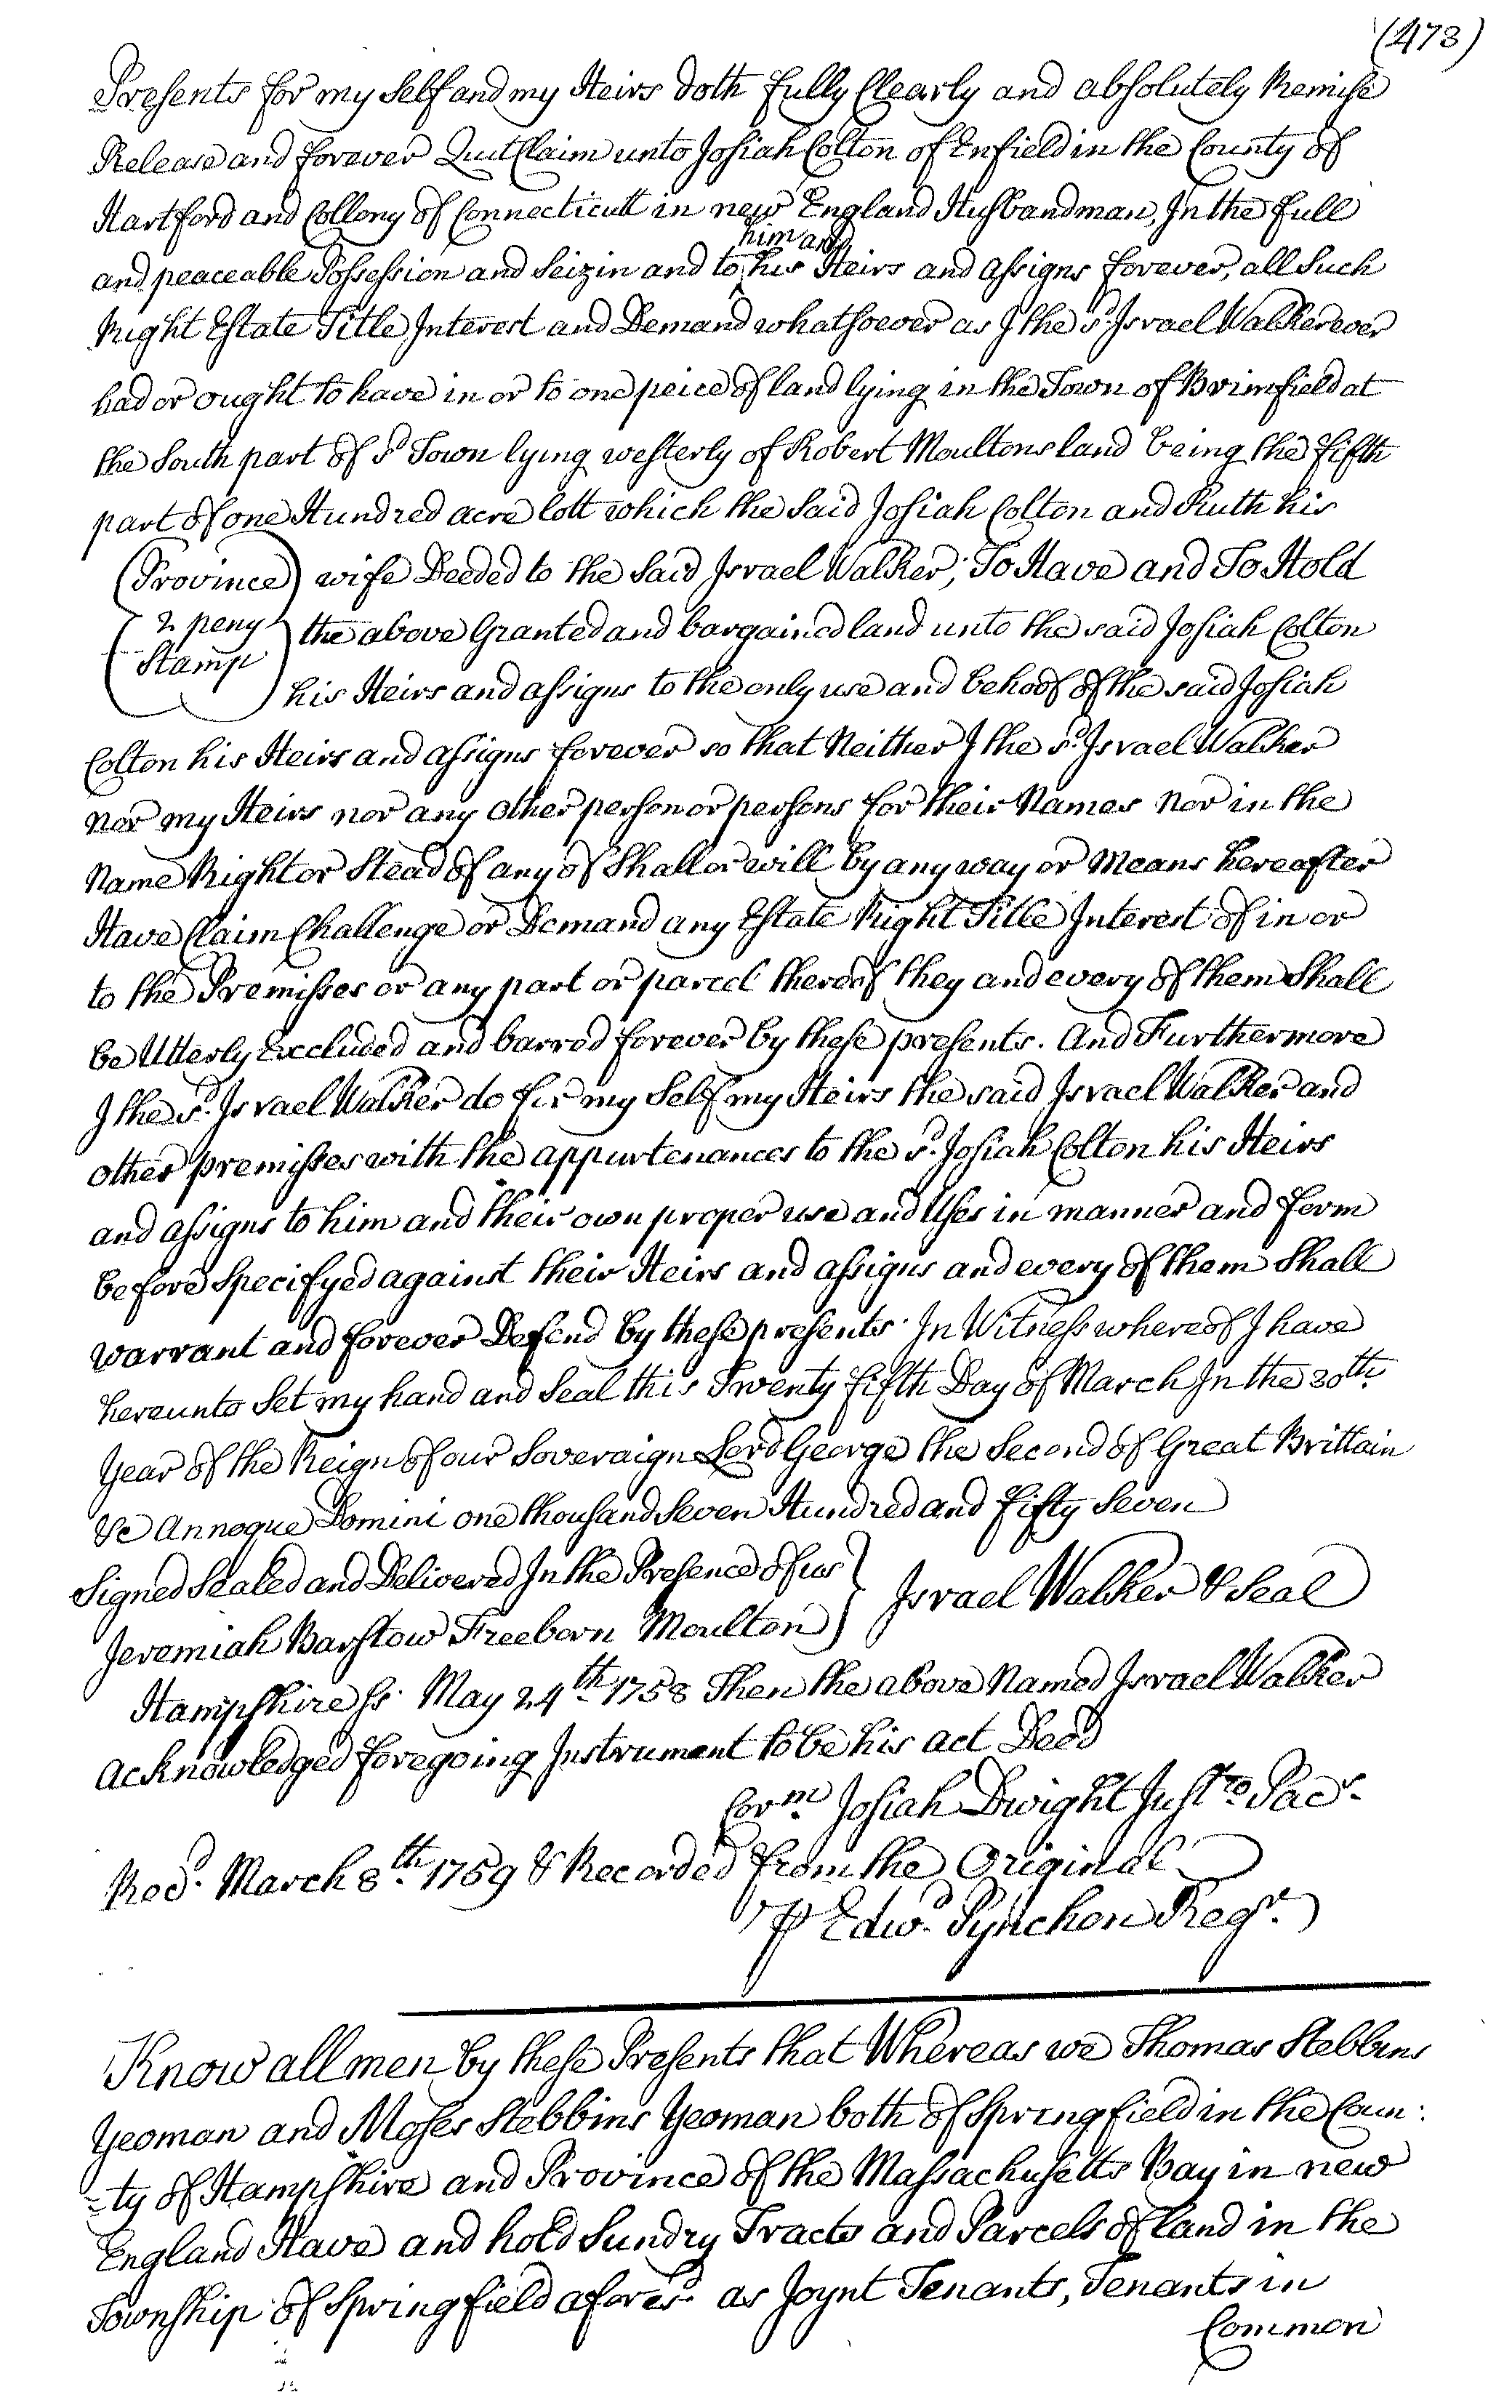 (473)
Presents for my Self and my Heirs doth fully Clearly and absolutely Remise
Release and forever QuitClaim unto Josiah Colton of Enfield in the County of
Hartford and Collony of Connecticutt in new England Husbandman, In the full
him and
and peaceable Possession and Seizin and to his Heirs and assigns forever, all Such
Right Estate Title Interest and Demand whatsoever as I the sd. Israel Walker ever
had or ought to have in or to one peice of land lying in the Town of Brimfield at
the South part of sd Town lying westerly of Robert Moultons land being the fifth
part of one Hundred acre lott which the Said Josiah Colton and Ruth his
(Province) wife Deeded to the Said Israel Walker; To Have and To Hold
2 peny the above Granted and bargained land unto the said Josiah Colton
Stamp
his Heirs and assigns to the only use and behoof of the said Josiah
Colton his Heirs and assigns forever so that Neither I the sd. Israel Walker
nor my Heirs nor any other person or persons for their Names Nor in the
Name Right or Stead of any of Shall or will by any way or Means hereafter
Have Claim Challenge or Demand any Estate Right Title Interest of in or
to the Premisses or any part or parcel thereof they and every of them Shall
be Utterly Excluded and barred forever by these presents. And Furthermore
I the sd. Israel Walker do for my Self my Heirs the said Israel Walker and
other premisses with the appurtenances to the sd. Josiah Colton his Heirs
and assigns to him and their own proper use and Uses in manner and form
before Specifyed against their Heirs and assigns and every of them Shall
warrant and forever Defend by these presents. In Witness whereof I have
hereunto Set my hand and Seal this Twenty fifth Day of March In the 30th.
Year of the Reign of our Soveraign Lord George the Second of Great Brittain
&c Annoque Domini one thousand Seven Hundred and Fifty Seven
Signed Sealed and Delivered In the Presence of us } Israel Walker & Seal
Jeremiah Barstow Freeborn Moulton
Hampshire ss. May 24th. 1758 Then the above Named Israel Walker
acknowledged foregoing Instrument to be his act Deed
Corm. Josiah Dwight Justo Pacs.
Recd. March 8th. 1759 & Recorded from the Original
⅌ Edwd. Pynchon Regr.
Know all men by these Presents that Whereas we Thomas Stebbins
Yeoman and Moses Stebbins Yeoman both of Springfield in the Coun:
=ty of Hampshire and Province of the Massachusetts Bay in new
England Have and hold Sundry Tracts and Parcels of land in the
Township of Springfield aforesd. as Joynt Tenants, Tenants in
Common